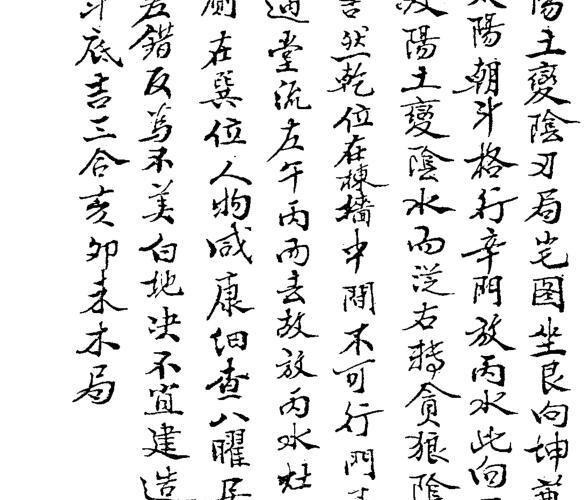 陽土變陰刃局宅圖坐艮向坤兼
太陽朝斗格行辛門放丙水此向
陽土變陰水而從右轉貪狼陰
言然乾位在棟墻中間不可行門
過堂流左午丙而去故放丙水灶
廁在巽位人物咸康細查八曜居
差錯反為不美白地決不宜建造
斗底吉三合亥卯未木局